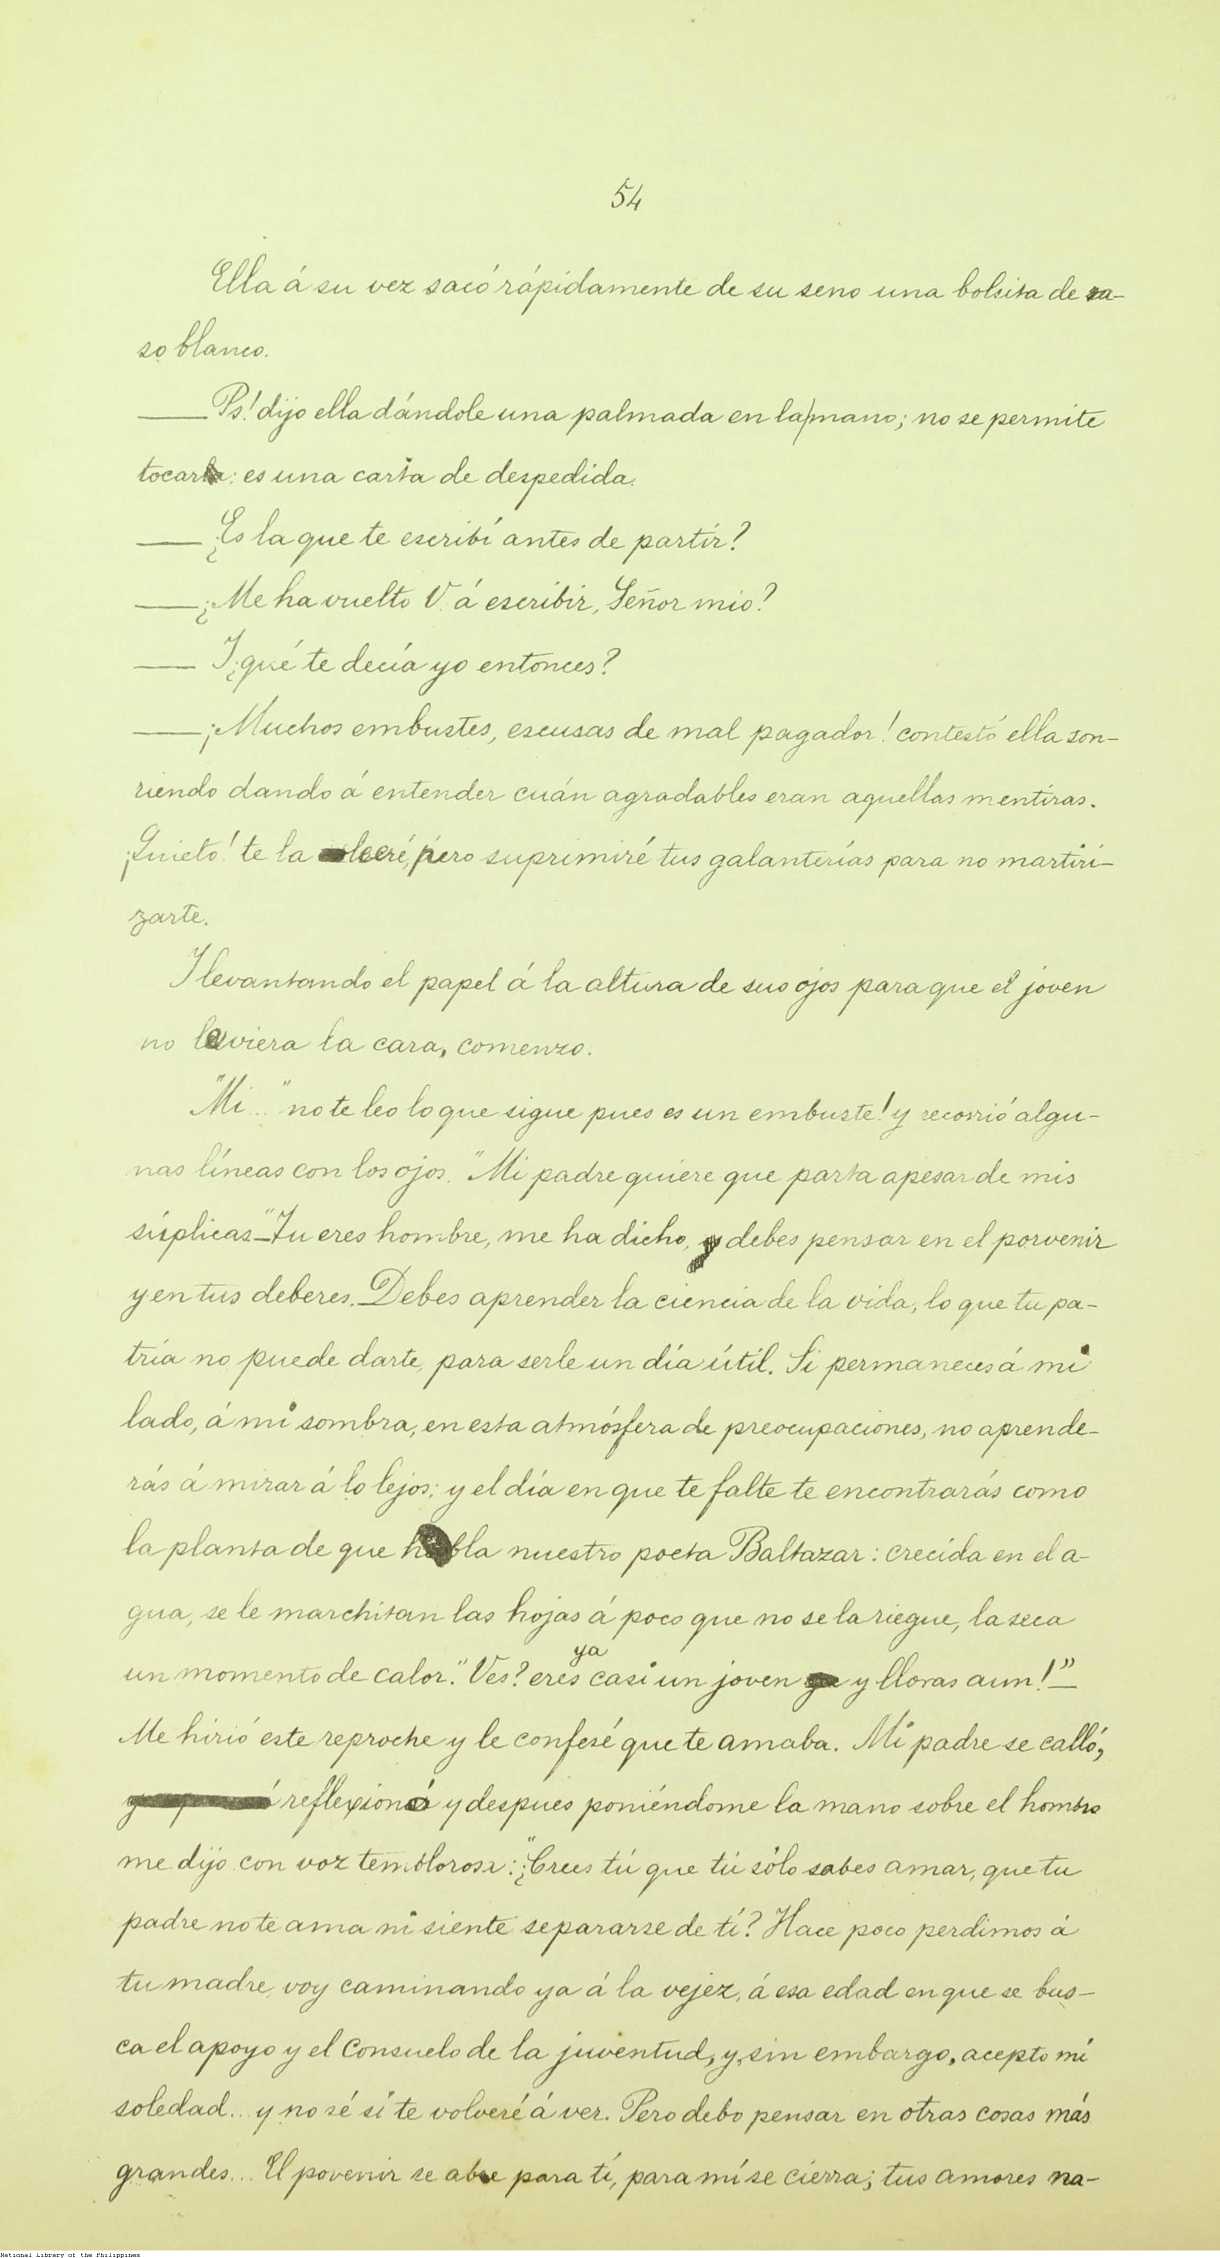 54
Ella á su vez sacó rápidamente de su seno una bolsita de ra-
so blanco.
—— Ps! dijo ella dándole una palmada en la mano; no se permite
tocarla: es una carta de despedida.
—— ¿Es la que te escribí antes de partir?
—— ¿Me ha vuelto V. á escribir, Señor mio?
—— Y ¿qué te decía yo entonces?
—— ¡Muchos embustes, escusas de mal pagador! contestó ella son-
riendo dando á entender cuán agradables eran aquellas mentiras.
¡Quieto! te la leeré, pero suprimiré tus galanterías para no martiri-
zarte.
Y levantando el papel á la altura de sus ojos para que el joven
no le viera la cara, comenzo.
"Mi..." no te leo lo que sigue pues es un embuste! y recorrió algu-
nas líneas con los ojos. "Mi padre quiere que parta apesar de mis
súplicas—"Tu eres hombre, me ha dicho, y debes pensar en el porvenir
y en tus deberes. Debes aprender la ciencia de la vida, lo que tu pa-
tria no puede darte, para serle un día útil. Si permaneces á mi
lado, á mi sombra, en esta atmósfera de preocupaciones, no aprende-
rás á mirar á lo lejos; y el día en que te falte te encontrarás como
la planta de que habla nuestro poeta Baltazar: crecida en el a-
gua, se le marchitan las hojas á poco que no se la riegue, la seca
ya
un momento de calor." Ves? eres casi un joven y lloras aun!"—
Me hirió este reproche y le confesé que te amaba. Mi padre se calló,
reflexionó y despues poniéndome la mano sobre el hombro
me dijo con voz temblorosa: "¿Crees tú que tú sólo sabes amar, que tu
padre no te ama ni siente separarse de tí? Hace poco perdimos á
tu madre, voy caminando ya á la vejez, á esa edad en que se bus-
ca el apoyo y el consuelo de la juventud, y, sin embargo, acepto mi
soledad... y no sé si te volveré á ver. Pero debo pensar en otras cosas más
grandes... El povenir se abre para tí, para mí se cierra; tus amores na-
National Library of the Philippines